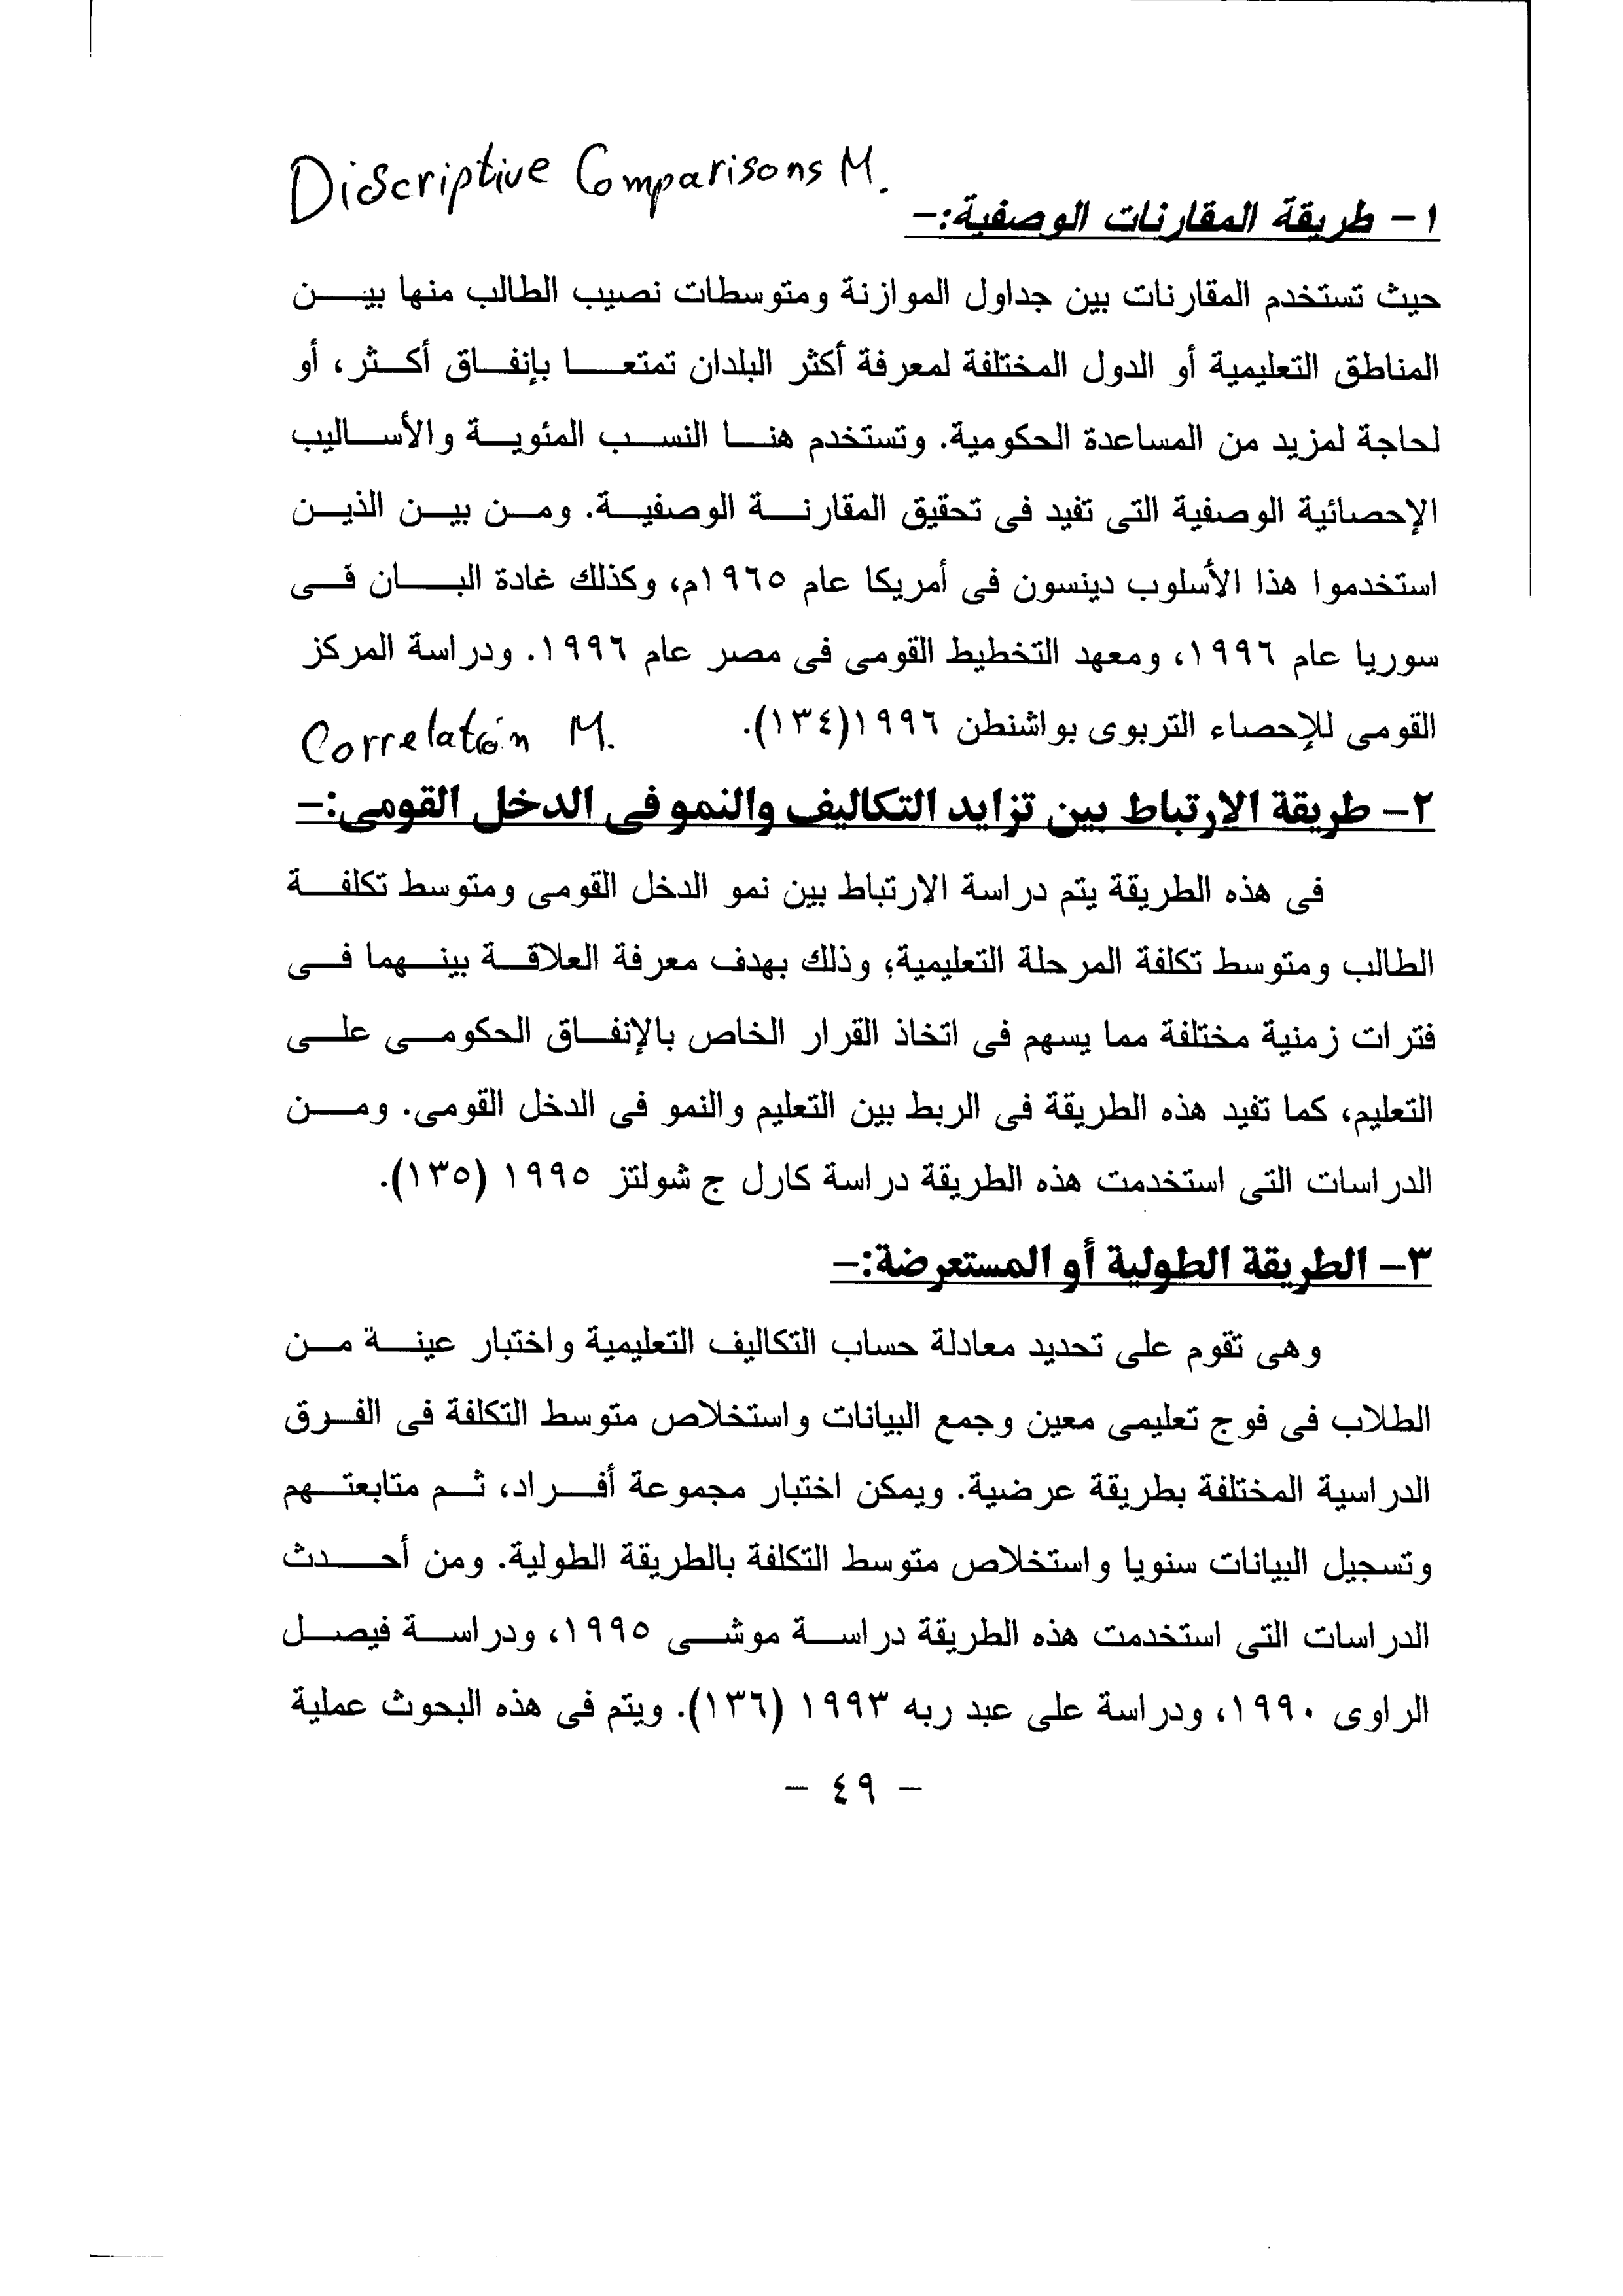 Discriptive Comparisons M.
١- طريقة المقارنات الوصفية:-
حيث تستخدم المقارنات بين جداول الموازنة ومتوسطات نصيب الطالب منها بين
المناطق التعليمية أو الدول المختلفة لمعرفة أكثر البلدان تمتعا بإنفاق أكثر، أو
لحاجة لمزيد من المساعدة الحكومية. وتستخدم هنا النسب المئوية والأساليب
الإحصائية الوصفية التى تفيد فى تحقيق المقارنة الوصفية. ومن بين الذين
استخدموا هذا الأسلوب دينسون فى أمريكا عام ١٩٦٥م، وكذلك غادة البان فى
سوريا عام ١٩٩٦، ومعهد التخطيط القومى فى مصر عام ١٩٩٦. ودراسة المركز
القومى للإحصاء التربوى بواشنطن ١٩٩٦(١٣٤).
Correlation M.
٢- طريقة الارتباط بين تزايد التكاليف والنمو فى الدخل القومى:-
فى هذه الطريقة يتم دراسة الارتباط بين نمو الدخل القومى ومتوسط تكلفة
الطالب ومتوسط تكلفة المرحلة التعليمية؛ وذلك بهدف معرفة العلاقة بينهما فى
فترات زمنية مختلفة مما يسهم فى اتخاذ القرار الخاص بالإنفاق الحكومى على
التعليم، كما تفيد هذه الطريقة فى الربط بين التعليم والنمو فى الدخل القومى. ومن
الدراسات التى استخدمت هذه الطريقة دراسة كارل ج شولتز ١٩٩٥ (١٣٥).
٣- الطريقة الطولية أو المستعرضة:-
وهى تقوم على تحديد معادلة حساب التكاليف التعليمية واختبار عينة من
الطلاب فى فوج تعليمى معين وجمع البيانات واستخلاص متوسط التكلفة فى الفرق
الدراسية المختلفة بطريقة عرضية. ويمكن اختبار مجموعة أفراد، ثم متابعتهم
وتسجيل البيانات سنويا واستخلاص متوسط التكلفة بالطريقة الطولية. ومن أحدث
الدراسات التى استخدمت هذه الطريقة دراسة موشى ١٩٩٥، ودراسة فيصل
الراوى ١٩٩٠، ودراسة على عبد ربه ١٩٩٣ (١٣٦). ويتم فى هذه البحوث عملية
- ٤٩ -